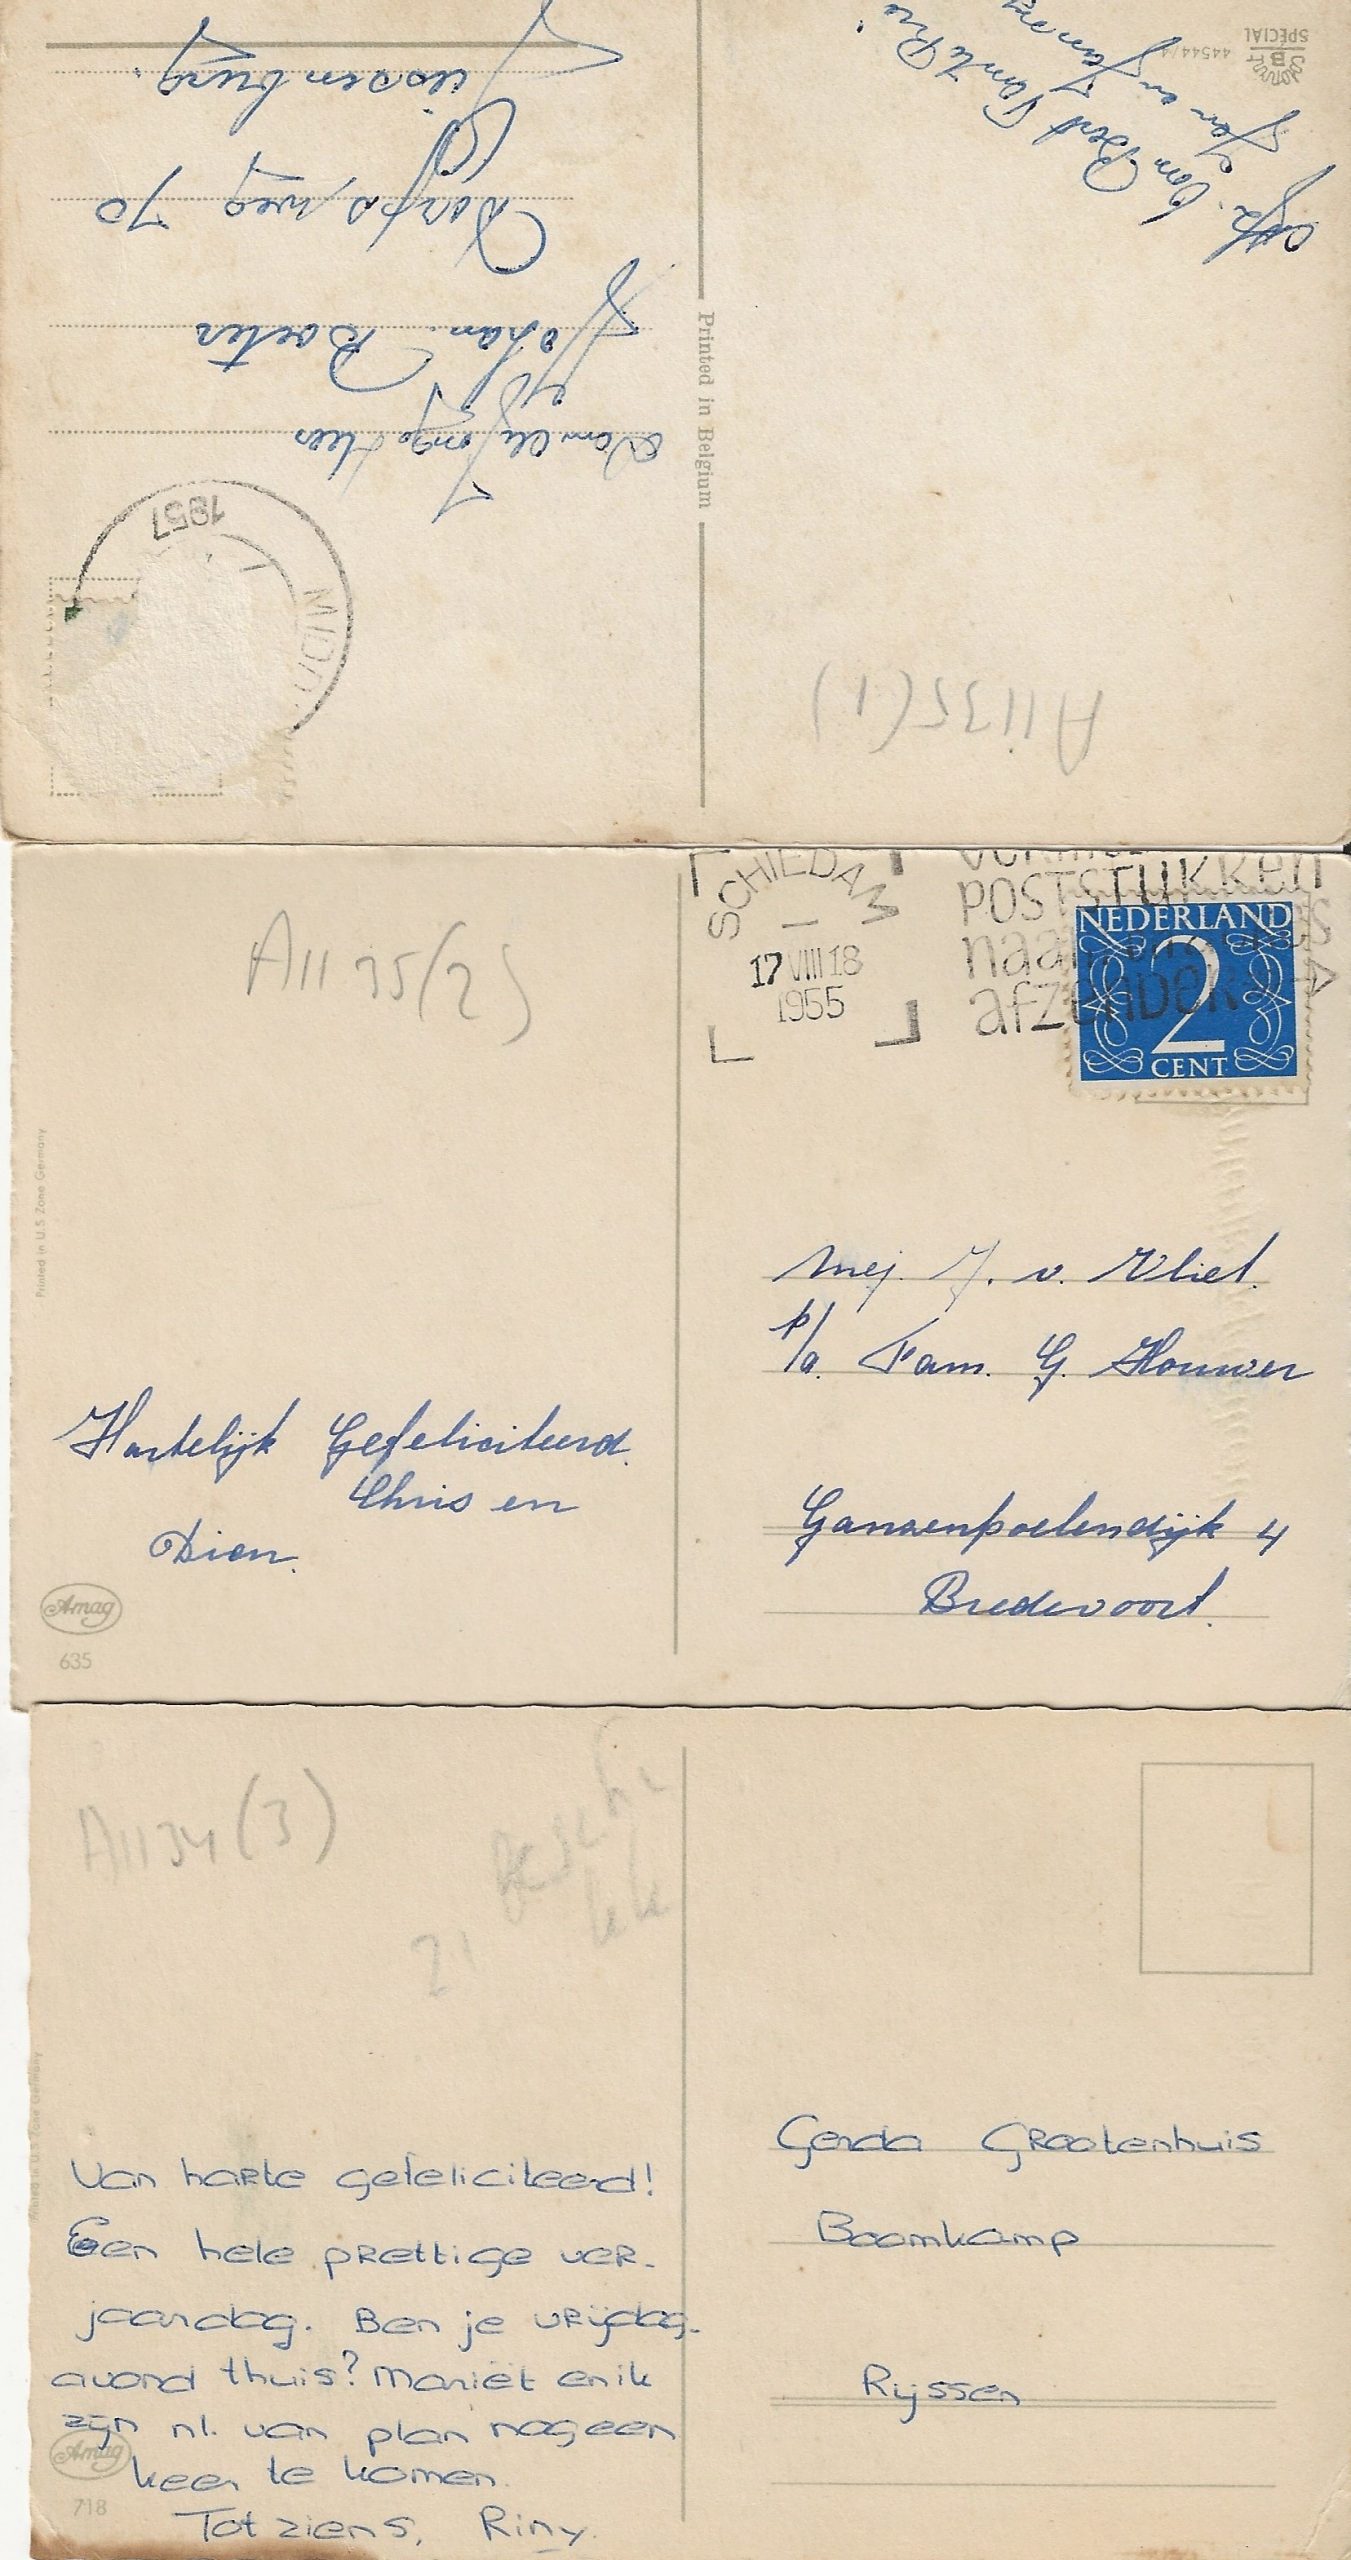 A1135(1)
1957
Aan den Jonge Heer
Johan. Roeters
Dorpsweg 70
Giessenburg.
Printed in Belgium
Afz. Oom Bert Tante Rie
Jan en Janny
44544/4
B
SPECIAL
A1135(2)
SCHIEDAM
17 VIII 18
1955
POSTSTUKKEN
afzenders
NEDERLAND
2
CENT
Printed in U.S Zone Germany
Mej. J. v. Vliet.
p/a. Fam. G. Houwer
Hartelijk Gefeliciteerd.
Chris en
Dien.
Ganzenpoelendijk 4
Bredevoort.
Amag
635
A1134(3)
21
Printed in U.S Zone Germany
Gerda Grootenhuis
Boomkamp
Rijssen
Van harte gefeliciteerd!
Een hele prettige ver-
jaardag. Ben je vrijdag-
avond thuis? Mariët en ik
zijn nl. van plan nog een
keer te komen.
Tot ziens, Riny.
Amag
718